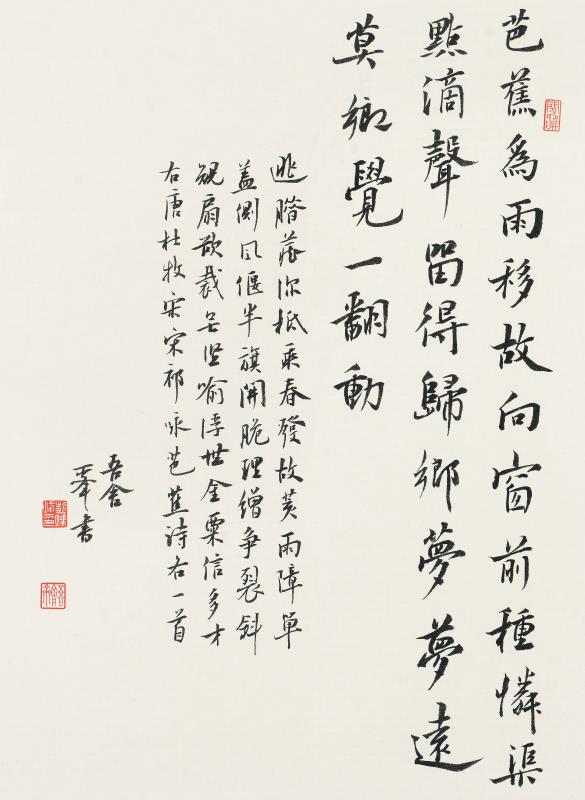 芭蕉為雨移故向窗前種憐渠
點滴聲留得歸鄉夢夢遠
莫鄉覺一翻動
深柢乘春發故荄雨障單
盖側風偃半旗開脆理繒争裂斜
規扇欲裁无堅喻浮世金粟信多才
右唐杜牧宋宋祁咏芭蕉詩右一首
吾舍
書